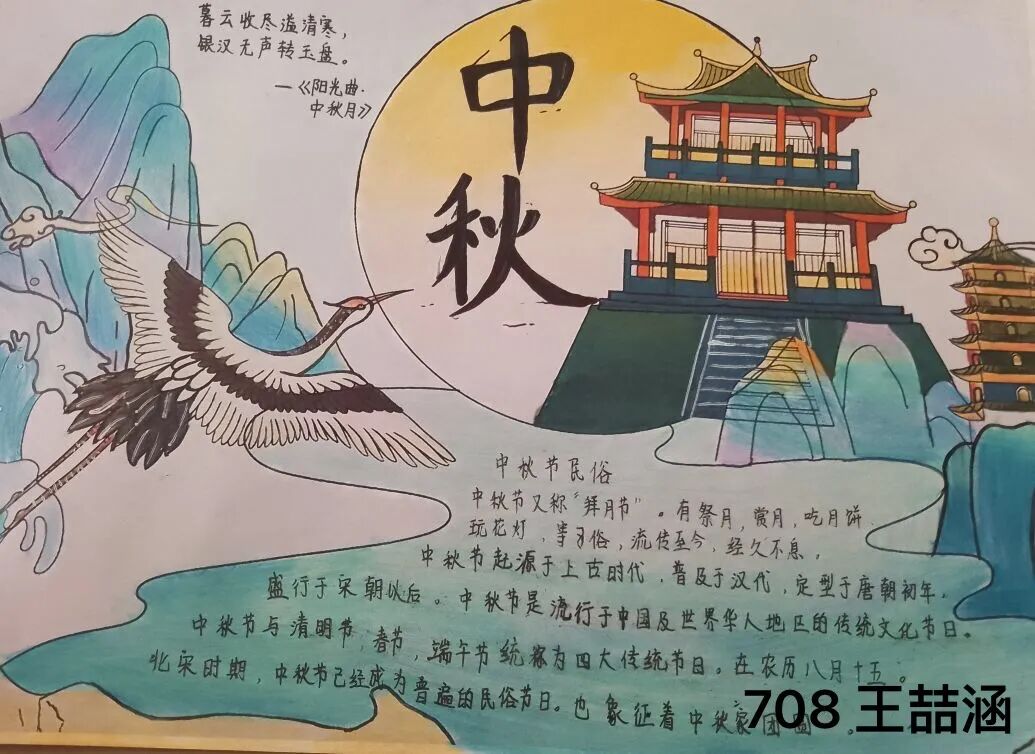 暮云收尽溢清寒，
银汉无声转玉盘。
—《阳光曲·
中秋月》
中
秋
中秋节民俗
中秋节又称“拜月节”。有祭月，赏月，吃月饼
玩花灯，等习俗，流传至今，经久不息，
中秋节起源于上古时代，普及于汉代，定型于唐朝初年，
盛行于宋朝以后。中秋节是流行于中国及世界华人地区的传统文化节日。
中秋节与清明节，春节，端午节统称为四大传统节日。在农历八月十五。
北宋时期，中秋节已经成为普遍的民俗节日。也象征着中秋家团圆。
708 王喆涵